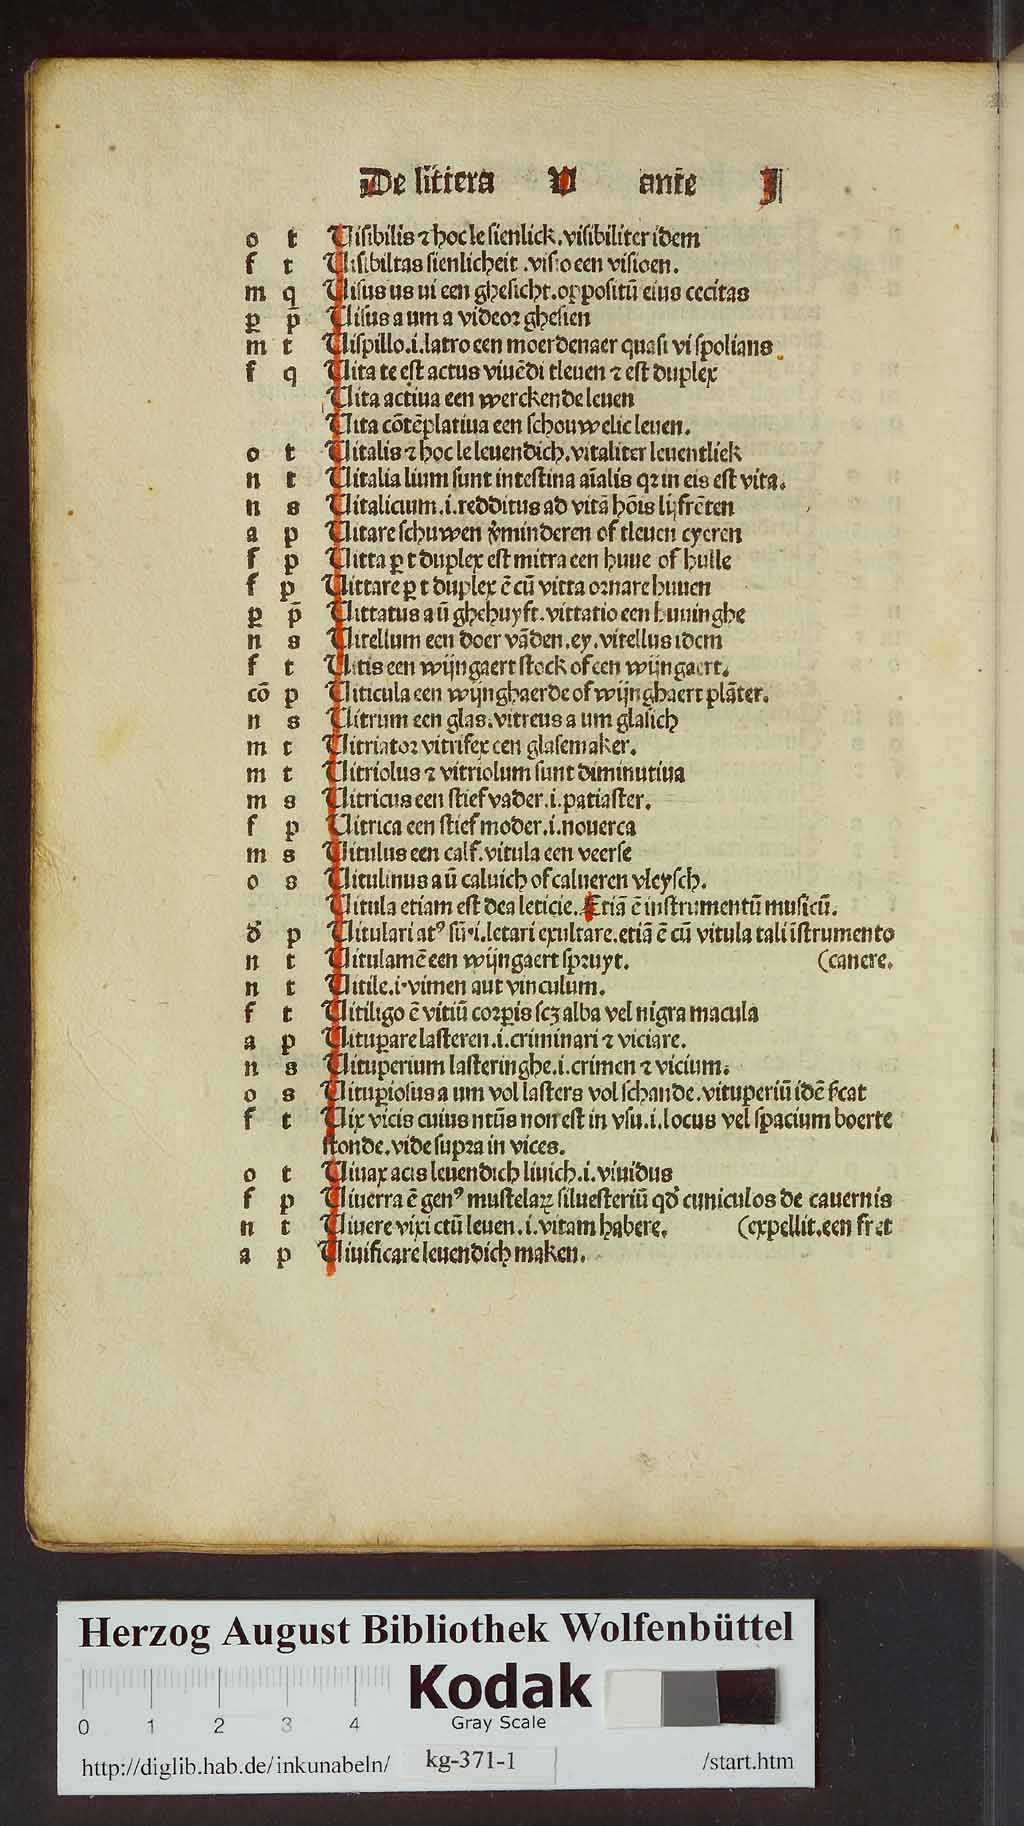 De littera V ante J
o t Uisibilis ⁊ hoc le sienlick.visibiliter idem
f t Uisibiltas sienlicheit .visio een visioen.
m q Uisus us ui een ghesicht.oppositū eius cecitas
ꝑ p̄ Uisus a um a videoꝛ ghesien
m t Uispillo.i.latro een moerdenaer quasi vi spolians
f q Uita te est actus viuēdi tleuen ⁊ est duplex
Uita actiua een werckende leuen
Uita cōtēplatiua een schouwelic leuen.
o t Uitalis ⁊ hoc le leuendich.vitaliter leuentliek
n t Uitalia lium sunt intestina aīalis qꝛ in eis est vita.
n s Uitalicium.i.redditus ad vitā hōis lijfrēten
a p Uitare schuwen v̾minderen of tleuen eyeren
f p Uitta ꝑ t duplex est mitra een huue of hulle
f p Uittare ꝑ t duplex ē cū vitta oꝛnare huuen
ꝑ p̄ Uittatus aū ghehuyft.vittatio een huuinghe
n s Uitellum een doer vāden.ey.vitellus idem
f t Uitis een wijngaert stock of een wijngaert.
cō p Uiticula een wijnghaerde of wijnghaert plāter.
n s Uitrum een glas.vitreus a um glasich
m t Uitriatoꝛ vitrifex een glasemaker.
m t Uitriolus ⁊ vitriolum sunt diminutiua
m s Uitricus een stiefvader.i.patiaster.
f p Uitrica een stiefmoder.i.nouerca
m s Uitulus een calf.vitula een veerse
o s Uitulinus aū caluich of calueren vleysch.
Uitula etiam est dea leticie. Etiā ē instrumentū musicū.
d̾ p Uitulari atꝰ sū.i.letari exultare.etiā ē cū vitula tali īstrumento
n t Uitulamē een wijngaert spꝛuyt. (canere.
n t Uitile.i.vimen aut vinculum.
f t Uitiligo ē vitiū coꝛꝑis scꝫ alba vel nigra macula
a p Uituꝑare lasteren.i.criminari ⁊ viciare.
n s Uituperium lasteringhe.i.crimen ⁊ vicium.
o s Uituꝑiosus a um vol lasters vol schande.vituperiū idē s̾cat
f t Uix vicis cuius ntūs non est in vsu.i.locus vel spacium boerte
stonde.vide supꝛa in vices.
o t Uiuax acis leuendich liuich.i.viuidus
f p Uiuerra ē genꝰ mustelaꝝ siluesteriū qd̾ cuniculos de cauernis
n t Uiuere vixi ctū leuen.i.vitam habere. (expellit.een fret
a p Uiuificare leuendich maken.
Herzog August Bibliothek Wolfenbüttel
0 1 2 3 4
Kodak
Gray Scale
http://diglib.hab.de/inkunabeln/ kg-371-1 /start.htm